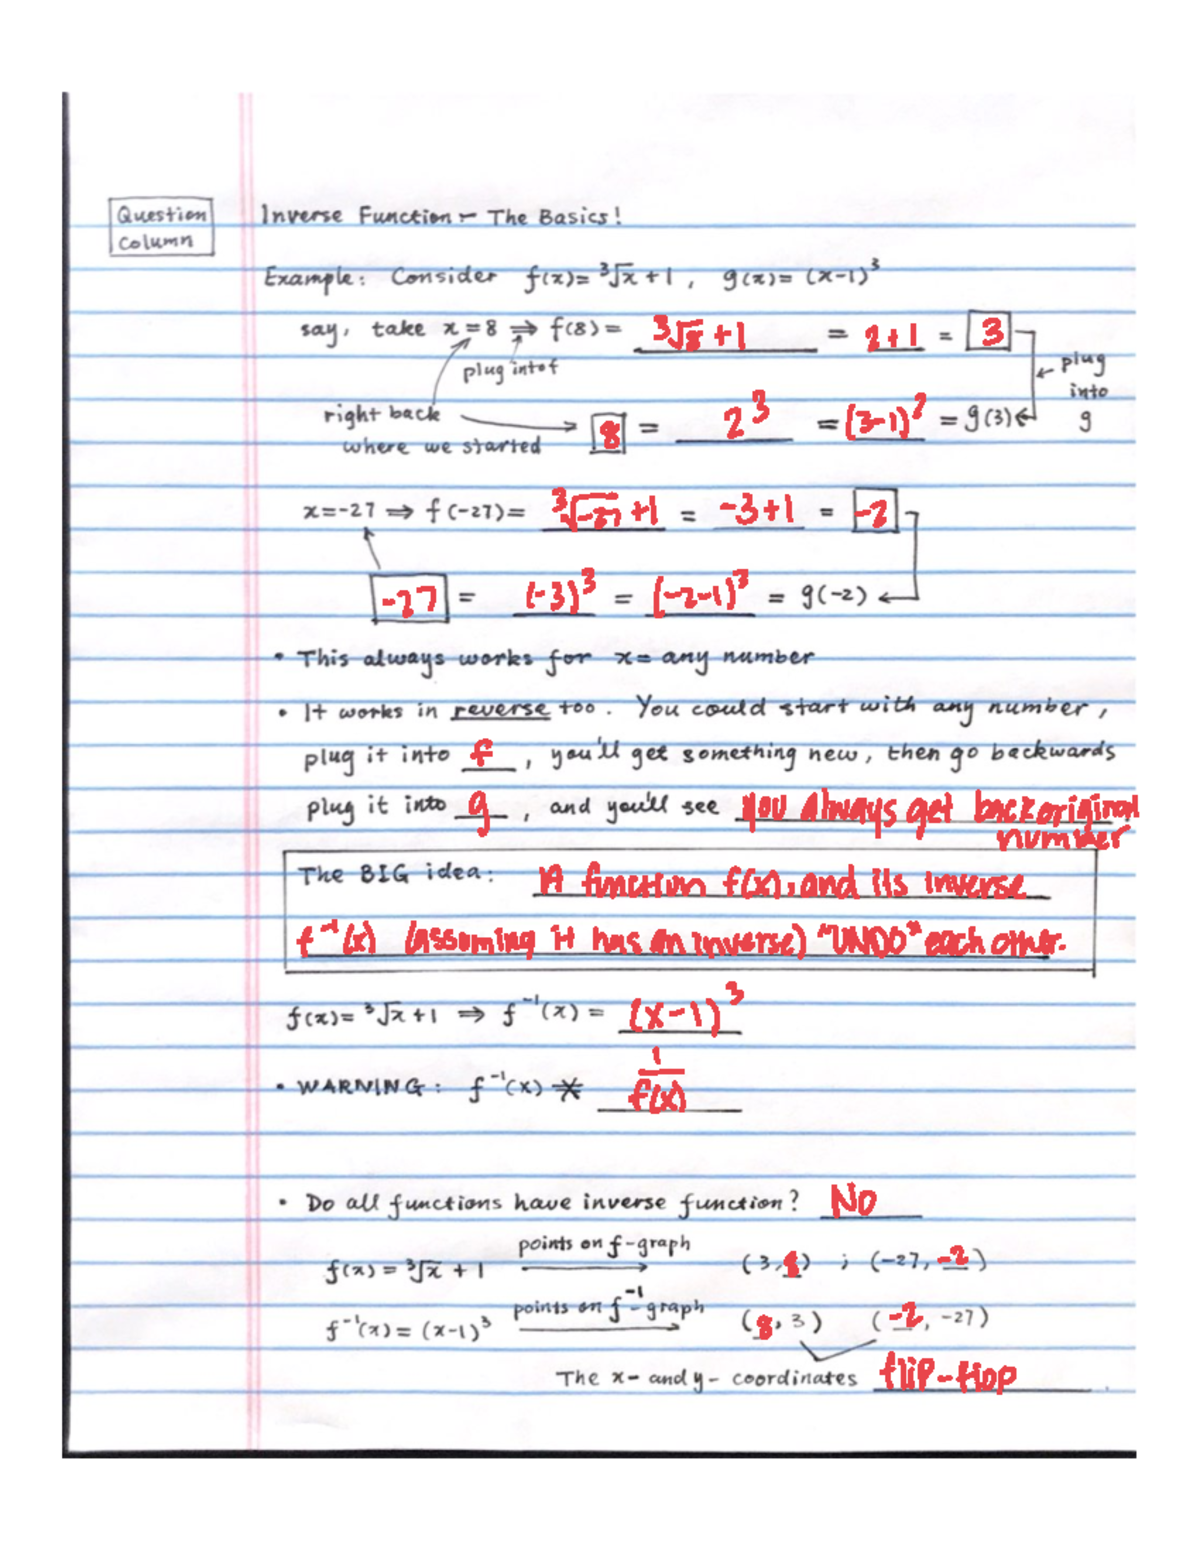 Question
Column
Inverse Function - The Basics!
Example: Consider f(x) = ³√x + 1 , g(x) = (x-1)³
say, take x = 8 ⇒ f(8) = ³√8 + 1 = 2+1 = 3
plug into f
plug
into
g
right back
where we started
8 = 2³ = (3-1)³ = g(3)
x = -27 ⇒ f(-27) = ³√-27 + 1 = -3+1 = -2
-27 = (-3)³ = (-2-1)³ = g(-2)
• This always works for x = any number
• It works in reverse too. You could start with any number,
plug it into f, you'll get something new, then go backwards
plug it into g, and you'll see you always get back original
number
The BIG idea: A function f(x), and its inverse
f⁻¹(x) (assuming it has an inverse) "UNDO" each other.
f(x) = ³√x + 1 ⇒ f⁻¹(x) = (x-1)³
• WARNING: f⁻¹(x) ≠ 1/f(x)
• Do all functions have inverse function? No
points on f-graph
f(x) = ³√x + 1 → (3, 8) ; (-27, -2)
points on f⁻¹-graph
f⁻¹(x) = (x-1)³ → (8, 3) (-2, -27)
The x- and y- coordinates flip-flop.